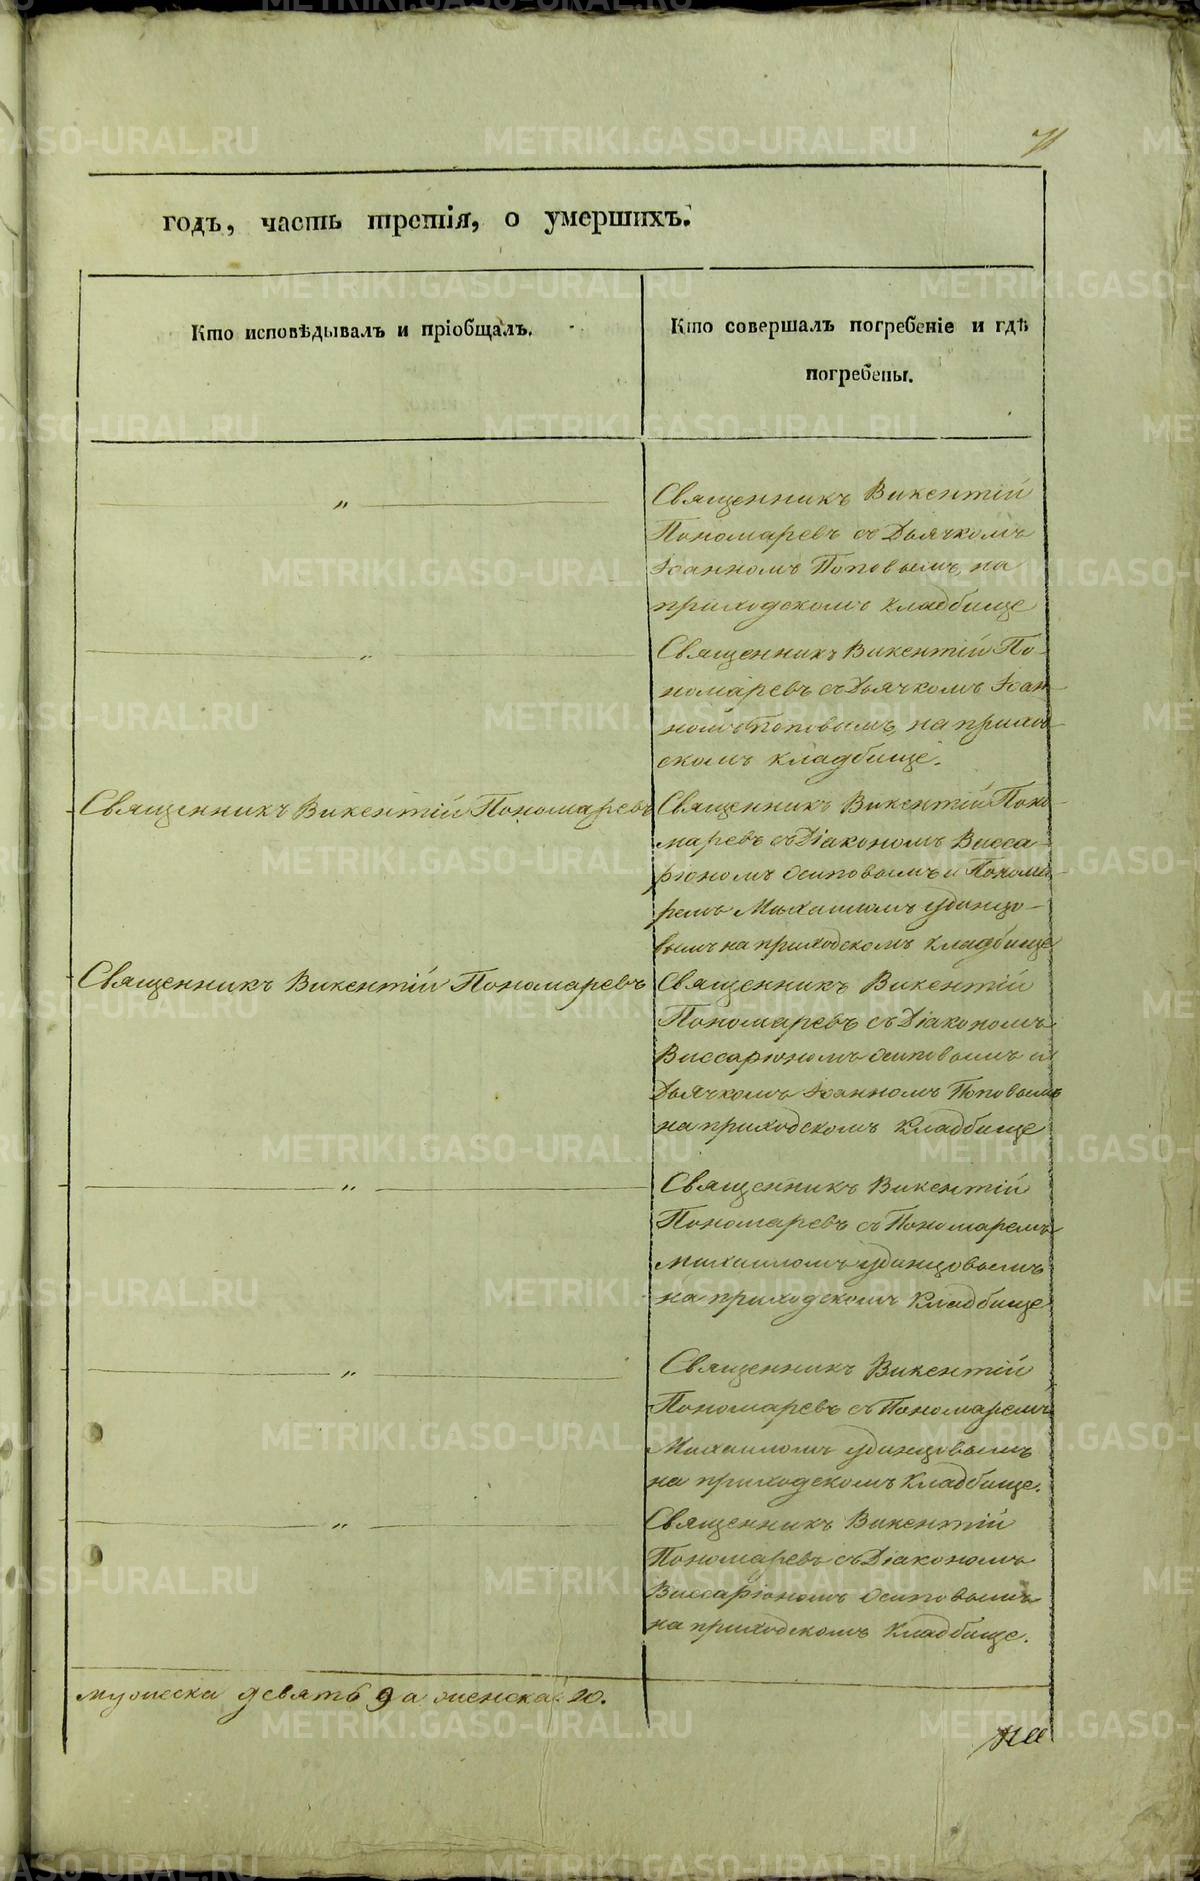 годъ, часть третія, о умершихъ.
Кто исповѣдывалъ и пріобщалъ.
Кто совершалъ погребеніе и гдѣ
погребены.
"
Священникъ Викентій
Пономаревъ съ Дьячкомъ
Іоанномъ Поповымъ, на
приходскомъ кладбище
"
Священникъ Викентій По-
номаревъ съ Дьячкомъ Іоан-
номъ Поповымъ, на прихо
скомъ кладбище.
Священникъ Викентій Пономаревъ
Священникъ Викентій Поно-
маревъ съ Діакономъ Висса-
ріономъ Осиповымъ и Понома-
ремъ Михаиломъ Удинцо-
вымъ на приходскомъ кладбище
Священникъ Викентій Пономаревъ
Священникъ Викентій
Пономаревъ съ Діакономъ
Виссаріономъ Осиповымъ и
Дьячкомъ Іоанномъ Поповымъ
на приходскомъ Кладбище
"
Священникъ Викентій
Пономаревъ съ Пономаремъ
Михаиломъ Удинцовымъ
на приходскомъ Кладбище
"
Священникъ Викентій
Пономаревъ съ Пономаремъ
Михаиломъ Удинцовымъ
на приходскомъ Кладбище.
"
Священникъ Викентій
Пономаревъ съ Діакономъ
Виссаріономъ Осиповымъ
на приходскомъ Кладбище.
мужеска девять 9 а женска 20.
METRIKI.GASO-URAL.RU